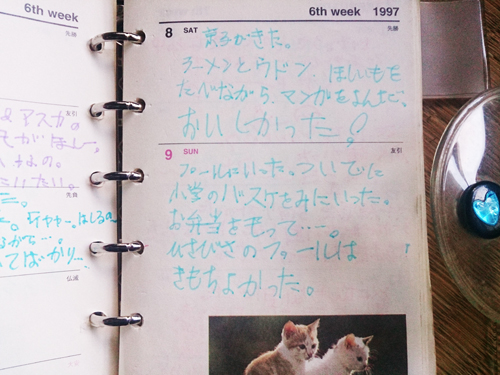 6th week
6th week 1997
8 SAT 先勝
京子がきた。
ラーメンとウドン、ほしいもを
たべながら、マンガをよんだ、
おいしかった!
9 SUN 友引
プールにいった。ついでに
小学のバスケをみにいった。
お弁当をもって……。
ひさびさのプールは
きもちよかった。
先勝
アスカの
友引
先負
仏滅